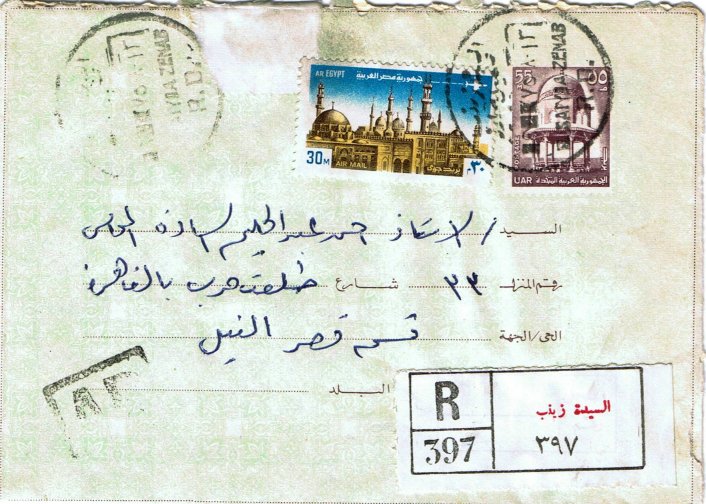 EL SAIYIDA ZENAB
R. D.
AR EGYPT جمهورية مصر العربية
30M AIR MAIL بريد جوى ٣٠م
55 ٥٥
UAR الجمهورية العربية المتحدة
السيد / الاستاذ احمد عبد الحليم
رقم المنزل ٣٣ شارع طلعت حرب بالقاهرة
الحى/الجهة قسم قصر النيل
البلد
R
397
السيدة زينب
٣٩٧